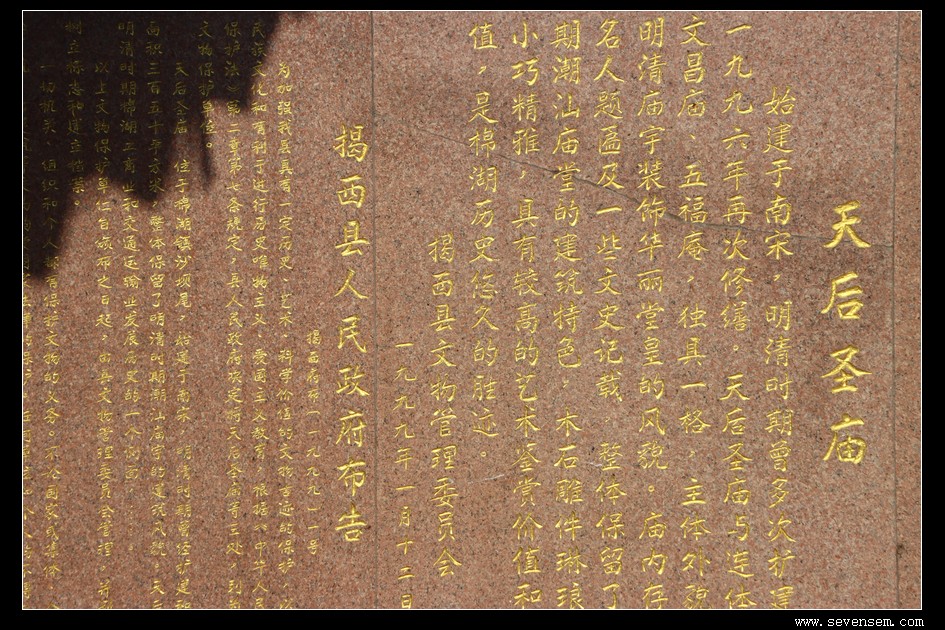 天后圣庙
始建于南宋，明清时期曾多次扩建
一九九六年再次修缮。天后圣庙与连体
文昌庙、五福庵，独具一格，主体外貌
明清庙宇装饰华丽堂皇的风貌。庙内存
名人题匾及一些文史记载 整体保留了
期潮汕庙堂的建筑特色。木石雕件琳琅
小巧精雅，具有较高的艺术鉴赏价值和
值，是棉湖历史悠久的胜迹。
揭西县文物管理委员会
一九九九年一月十二日
揭西县人民政府布告
揭西府布(一九九九)一号
为加强我县具有一定历史、艺术、科学价值的文物古迹的保护
民族文化和有利于进行历史唯物主义、爱国主义教育，根据《中华人民
保护法》第二章第七条规定，县人民政府决定将天后圣庙等三处
文物保护单位。
天后圣庙 位于棉湖镇沙坝尾，始建于南宋 明清时期曾经扩建和
面积三百五十平方米，整体保留了明清时期潮汕庙宇的建筑风貌。天
明清时期棉湖工商业和交通运输业发展历史的一个侧面。
以上文物保护单位自颁布之日起，由县文物管理委员会管理，并
树立标志和建立档案。
一切机关、组织和个人都有保护文物的义务。不论国家或集体
www.sevensem.com